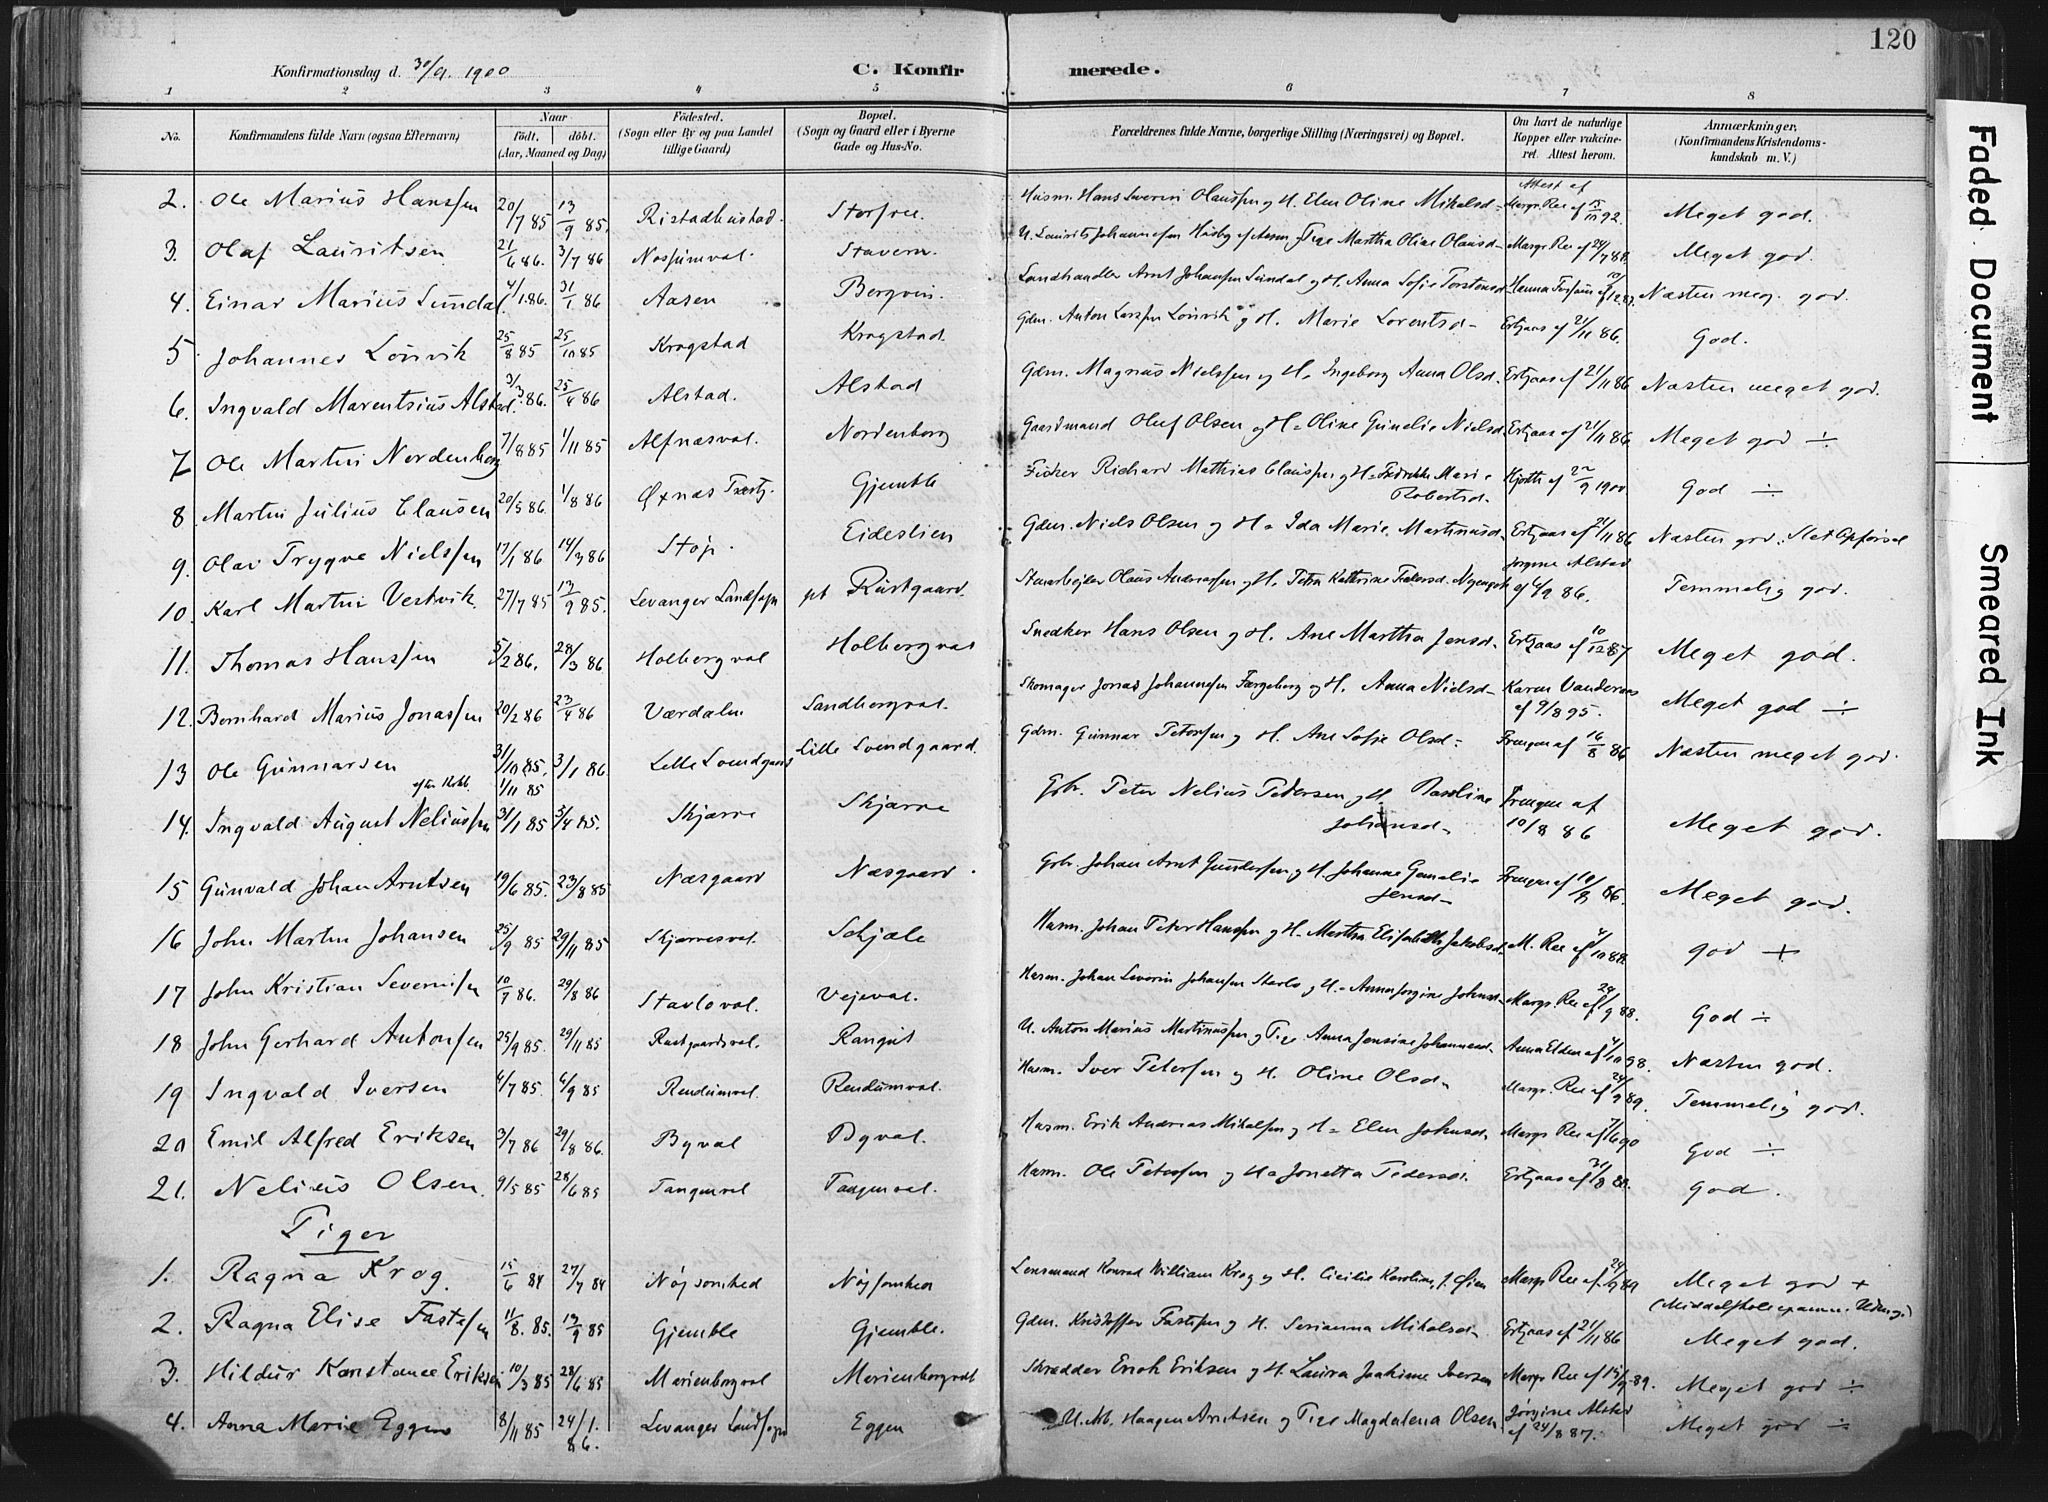 120
Konfirmationsdag d. 30/9. 1900
C. Konfirmerede.
1 2 3 4 5 6 7 8
No.
Konfirmandens fulde Navn (ogsaa Efternavn)
Naar
födt. döbt.
(Aar, Maaned og Dag)
Födested.
(Sogn eller By og paa Landet
tillige Gaard)
Bopæl.
(Sogn og Gaard eller i Byerne
Gade og Hus-No.
Forældrenes fulde Navne, borgerlige Stilling (Næringsvei) og Bopæl.
Om havt de naturlige
Kopper eller vakcine-
ret. Attest herom.
Anmærkninger,
(Konfirmandens Kristendoms-
kundskab m. V.)
2. Ole Marius Hanssen 20/7 85 13/9 85. Ristadhustad. Husm. Hans Severin Olaussen og H. Elen Oline Mikalsd. Attest af Margr. Ree 92. Meget god.
3. Olaf Lauritsen 21/6 86. 3/7 86 Stavern. Martha Oline Olausd. Margr. Ree af 24/7 88. Meget god.
4. Einar Marius Sundal 4/1.86. 31/1 86 Aasen Bergvin. Landhandler Arnt Johansen Sundal og H. Anna Sofie Torstensd. Næsten meg. god.
5. Johannes Lönvik 25/8 85 25/10 85 Krogstad Krogstad. Gdm. Anton Larssen Lönvik og H. Marie Lorentsd. Ertzaas af 21/11 86. God.
6. Ingvald Marentsius Alstad. 3/3 86. 25/4 86 Alstad. Alstad Gdm. Magnus Nielssen og H. Ingeborg Anna Olsd. Ertzaas af 21/11 86 Næsten meget god.
7 Ole Martin Nordenborg 7/8 85 1/11 85 Alfnæsval. Nordenborg Gaardmand Oluf Olsen og H. Oline Gunelie Nielsd. Ertzaas af 21/11 86. Meget god ÷
8 Martin Julius Clausen 20/5 86. 1/8 86 Øxnæs Gjemble Fisker Richard Mathias Claussen og H. Fredrikke Marie Robertsd. Hjorth af 22/9 1900 God ÷
9. Olav Trygve Nielssen 17/1 86 14/3 86 Stöp. Eideslien Gdm. Niels Olsen og H. Ida Marie Martinusd. Ertzaas af 21/11 86 Næsten god. Slet Opförsel
10. Karl Martin Vestvik. 27/7 85 13/9 85. Levanger Landsogn pt Rustgaard. Olaus Andreassen og H. Petra Kathrine Pedersd. Jørgine Alstad 86. Temmelig god.
11. Thomas Hanssen 5/2 86. 28/3 86 Holbergval Holbergval Snedker Hans Olsen og H. Ane Martha Jensd. Ertzaas af 10/12 87 Meget god.
12. Bernhard Marius Jonassen 20/2 86 23/4 86 Værdalen Sandbergval. Skomager Jonas Johannesen Færgeberg og H. Anna Nielsd. Karen af 9/8 95. Meget god ÷
13 Ole Gunnarsen 31/10 85. 1/11 85 3/1 86. Lille Svendgaard Lille Svendgaard. Gdm. Gunnar Petersen og H. Ane Sofie Olsd. Frengen af 16/8 86 Næsten meget god.
14. Ingvald August Neliussen 31/1 85 3/4 85. Skjærve Skjærve Gbr. Peter Nelius Pedersen og H. Paroline Johansd. Frengen af 10/8 86 Meget god.
15 Gunvald Johan Arntsen 19/6 85. 23/8 85 Næsgaard Næsgaard. Gbr. Johan Arnt Gundersen og H. Johanne Jensd. Frengen af 86. Meget god.
16 John Martin Johansen 25/9 85 29/11 85 Skjærvesval. Skjæle Husm. Johan Peter Hanssen og H. Martha Elisabeth Jakobsd. M. Ree af 88. god +
17 John Kristian Severinsen 10/7 86. 29/8 86 Stavloval. Vejeval. Husm. Johan Severin Johansen Stavlo og H. Anna Jørgine Johnsd. Margr. Ree af 24/9 88. God ÷
18 John Gerhard Antonsen 25/9 85. 29/11 85 Rustgaardsval. Ranguit U. Anton Marius Martinussen og Pige Anna Jensine Johannesd. Anna Elden af 98. Næsten god.
19 Ingvald Iversen 4/7 85. 6/9 85 Rendumval. Rendumval. Husm. Iver Petersen og H. Oline Olsd. Margr. Ree af 24/9 89. Temmelig god.
20 Emil Alfred Eriksen 3/7 86 29/8 86. Byval Byval. Husm. Erik Andreas Mikalsen og H. Elen Johnsd. Margr. Ree af 90 God ÷
21. Nelius Olsen. 9/5 85 28/6 85 Tangenval Tangenval. Husm. Ole Petersen og H. Jonetta Pedersd. Ertzaas af 88. God.
Piger
1. Ragna Krog. 15/6 84 27/7 84 Nöjsomhed Nöjsomhed Lensmand Konrad William Krog og H. Cecilie Karoline f. Øien Margr. Ree af 24/9 89 Meget god +
2. Ragna Elise Fastesen 11/8. 85. 13/9 85 Gjemble Gjemble. Gdm. Kristoffer Fastesen og H. Serianna Mikalsd. Ertzaas af 21/11 86 Meget god.
3. Hildur Konstance Eriksen 10/3 85 28/6 85 Marienborgval Marienborgval Skrædder Enok Eriksen og H. Laura Joakime Iversen Margr. Ree af 15/9 89. Meget god ÷
4. Anna Marie Eggen 8/11 85 24/1. 86. Levanger Landsogn Eggen U. Arb. Haagen Arntsen og Pige Magdalena Olsen. Jørgine Alstad af 24/8 87. Meget god ÷
Faded Document
Smeared Ink